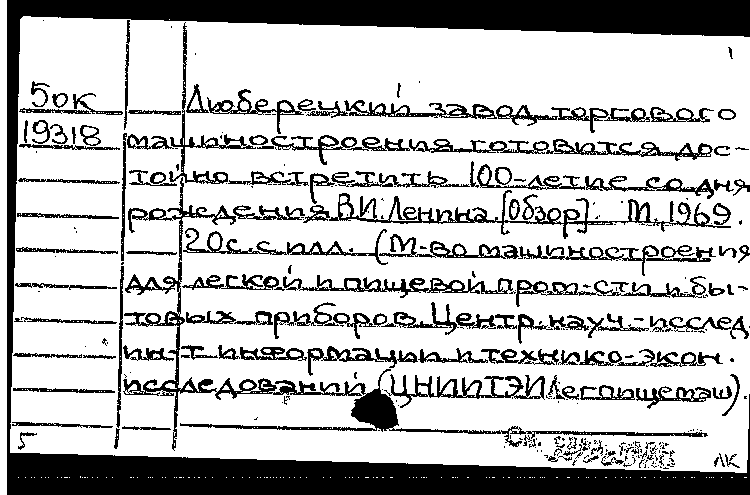 1
5ок Люберецкий завод торгового
19318 машиностроения готовится дос-
тойно встретить 100-летие со дня
рождения В.И.Ленина. [Обзор]. М., 1969.
20с. с илл. (М-во машиностроения
для легкой и пищевой пром-сти и бы-
товых приборов. Центр. науч.-исслед.
ин-т информации и технико-экон.
исследований (ЦНИИТЭИЛегпищемаш).
См.
5 ЛК